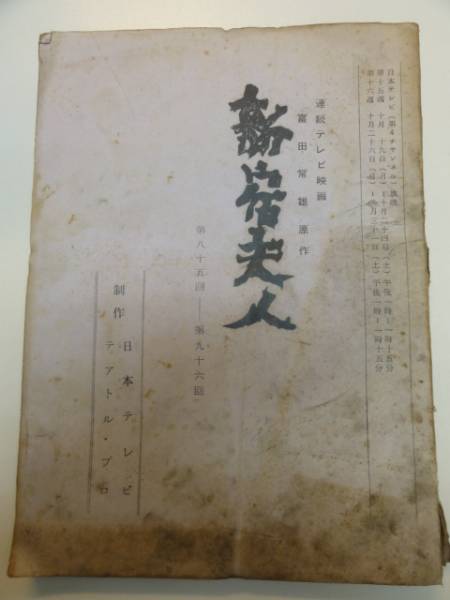 日本テレビ(第4チャンネル)放映
第十五週 十月 十九日(月)―十月二十四日(土)午後一時―一時十五分
第十六週 十月二十六日(月)―十月三十一日(土)午後一時―一時十五分
連続テレビ映画
富田常雄原作
夫人
第八十五回――第九十六回
制作 日本テレビ
テアトル・プロ